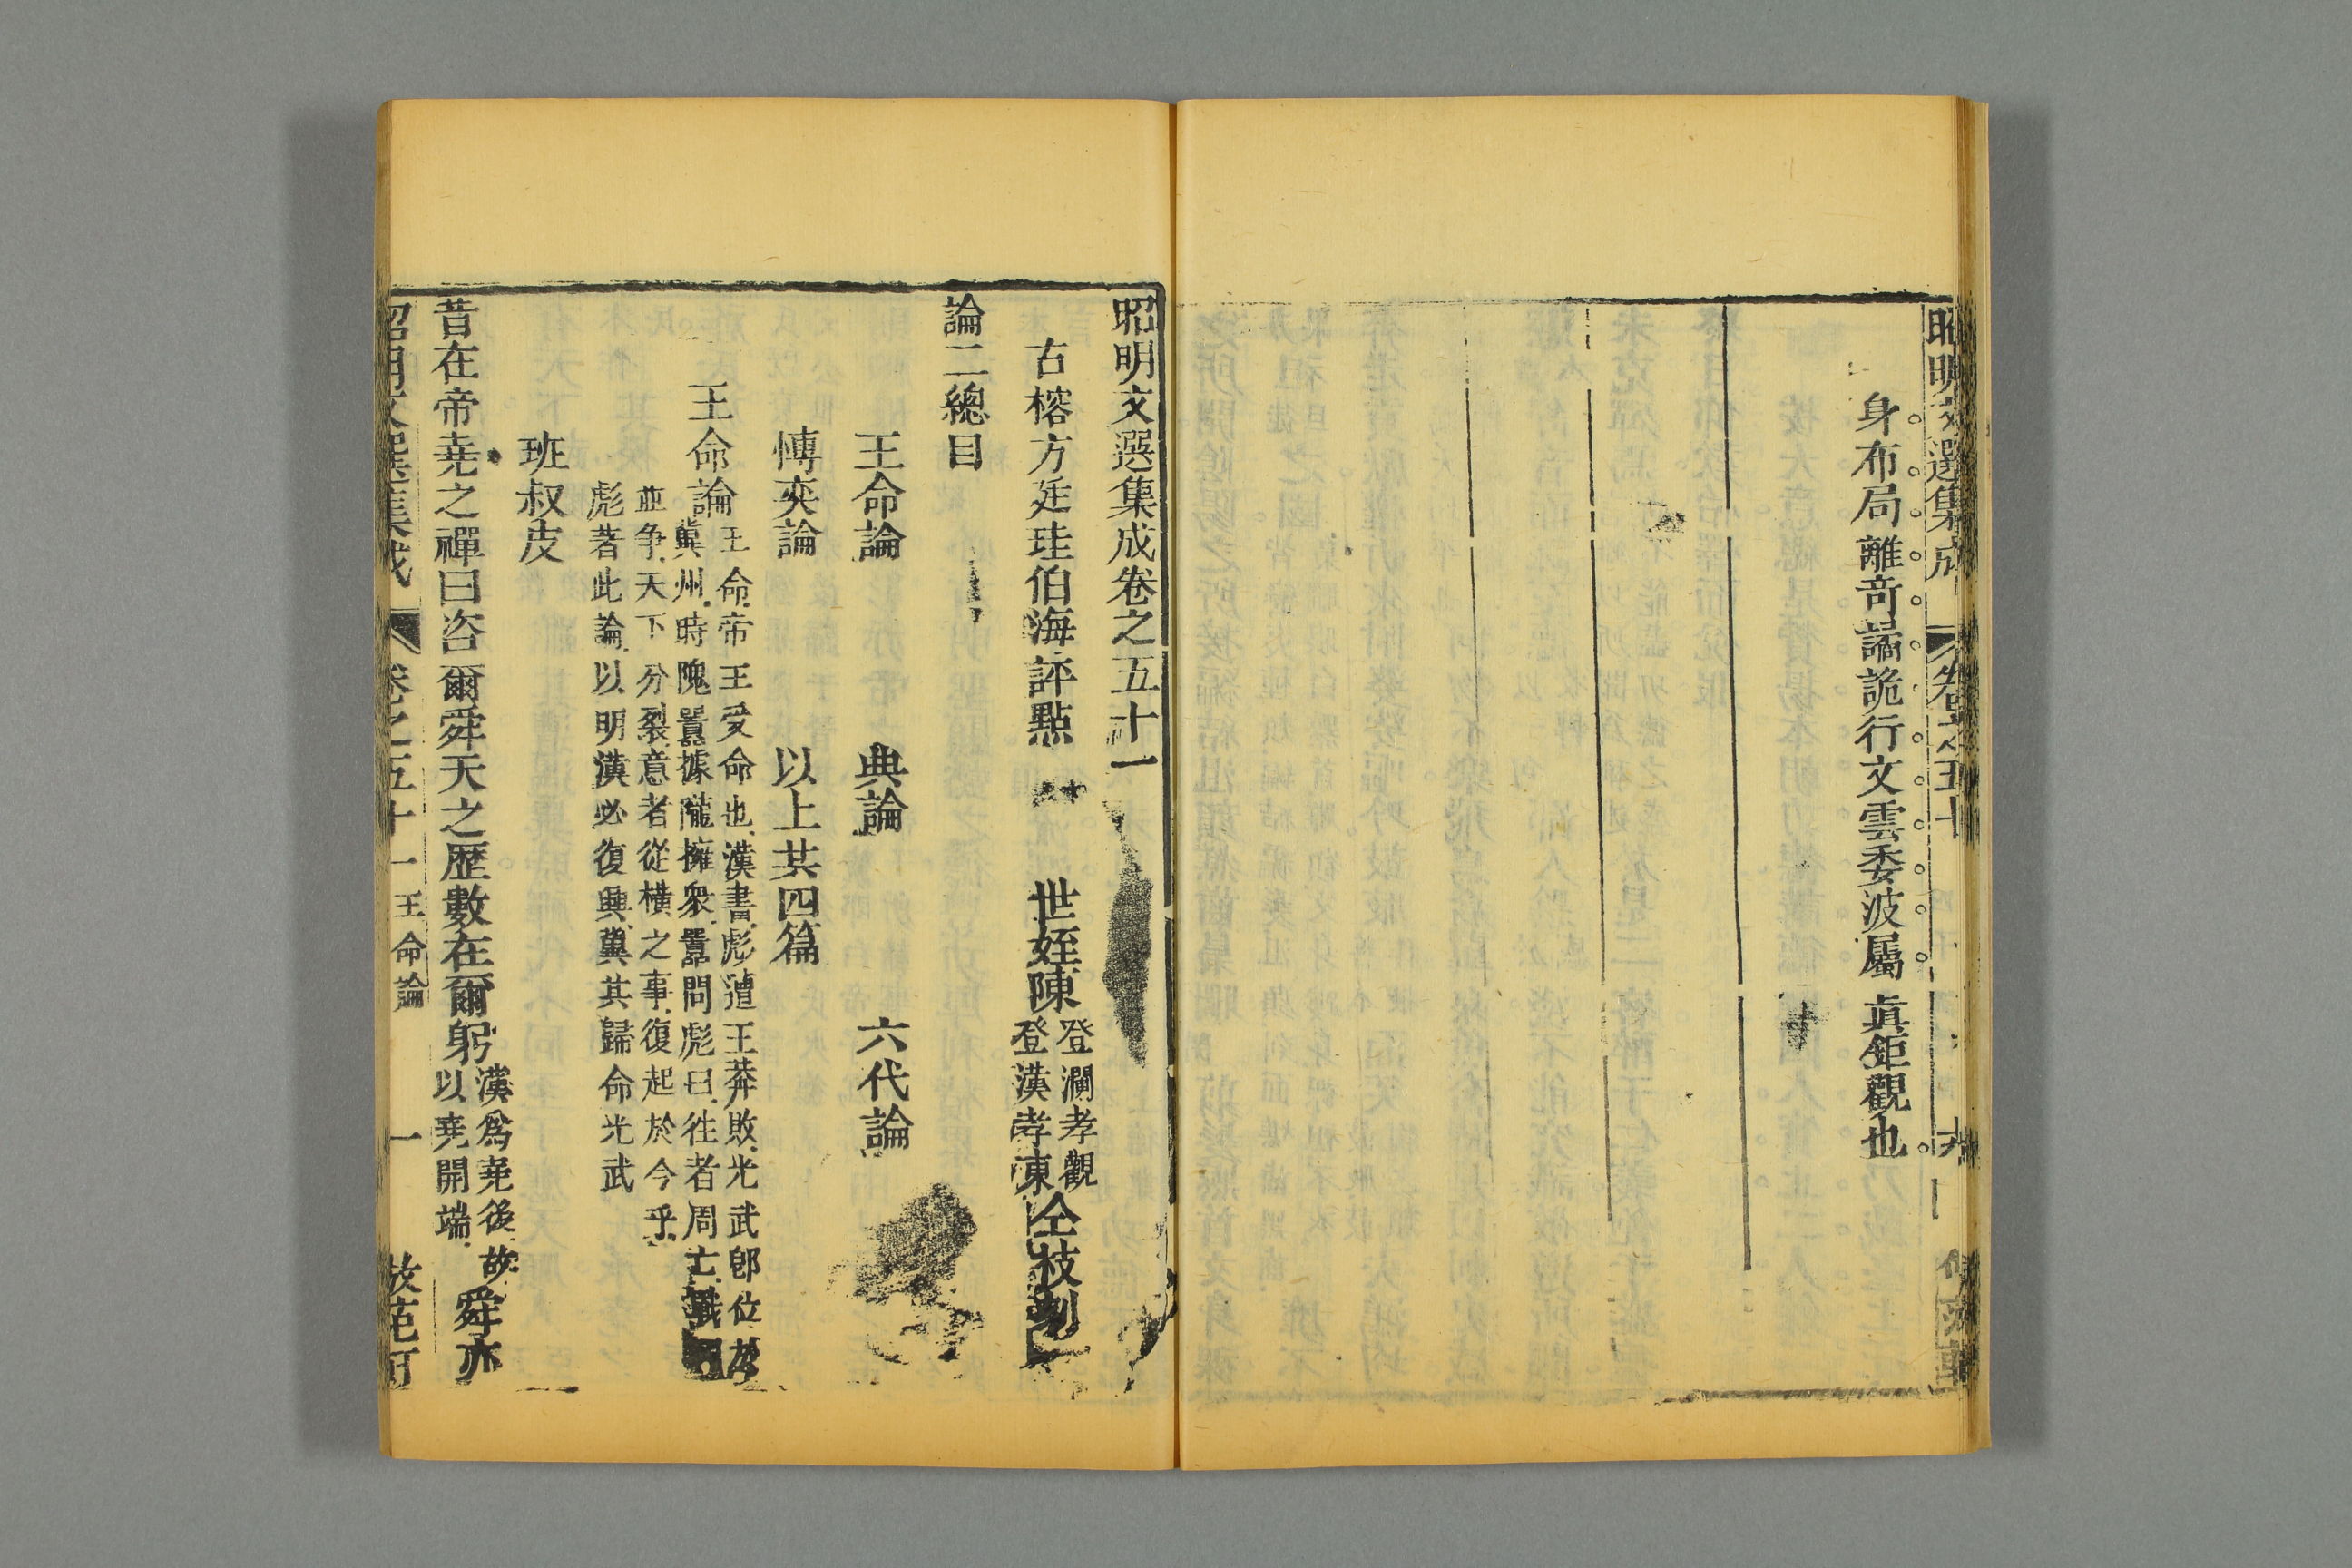 昭明文選集成 卷之五十
身布局離奇譎詭行文雲委波屬眞鉅觀也
昭明文選集成卷之五十一
古榕方廷珪伯海評點 世姪陳登瀾孝觀登漢孝東仝校刻
論二總目
王命論 典論 六代論
愽奕論 以上共四篇
王命論王命帝王受命也漢書彪遭王莽敗光武卽位
冀州時隗囂據隴擁衆囂問彪曰徃者周亡戰國
並爭天下分裂意者從橫之事復起於今乎
彪著此論以明漢必復興冀其歸命光武
班叔皮
昔在帝堯之禪曰咨爾舜天之歷數在爾躬漢爲堯後故以堯開端舜亦
昭明文選集成 卷之五十一 王命論 一